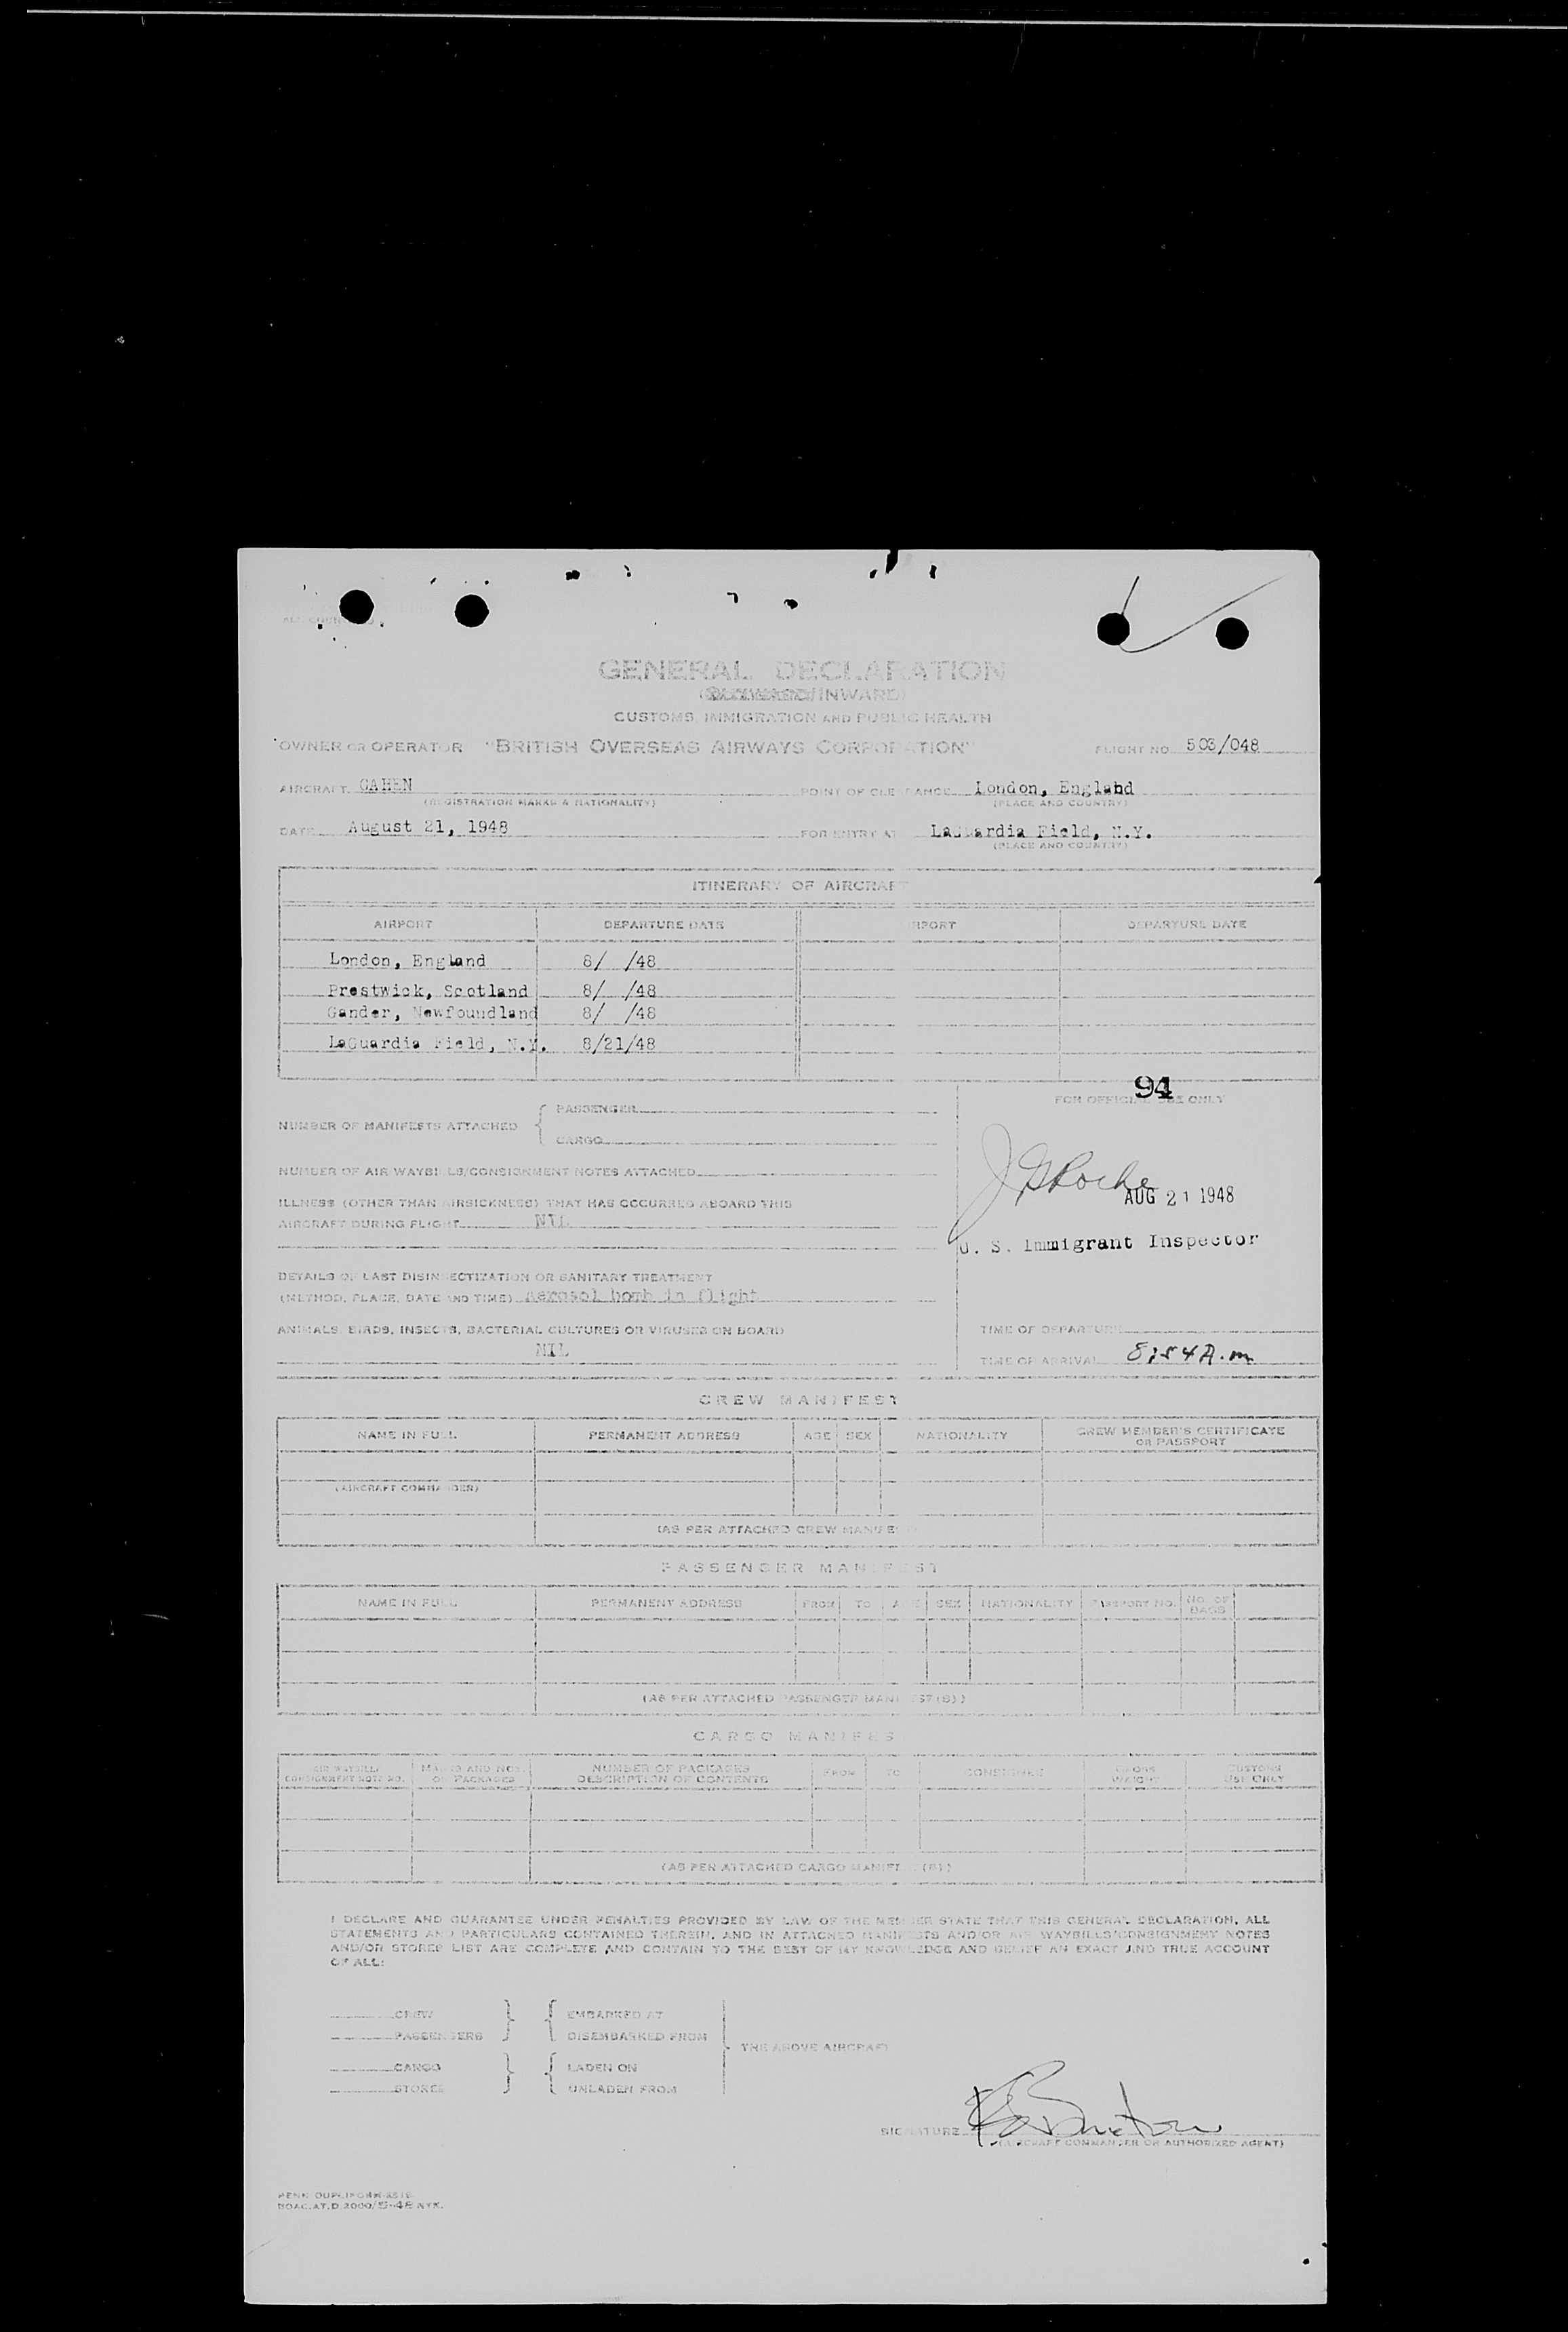 GENERAL DECLARATION
(OUTWARD/INWARD)
CUSTOMS, IMMIGRATION AND PUBLIC HEALTH
OWNER OR OPERATOR "BRITISH OVERSEAS AIRWAYS CORPORATION" FLIGHT NO. 503/048
AIRCRAFT GAHEN POINT OF CLEARANCE London, England
(REGISTRATION MARKS & NATIONALITY) (PLACE AND COUNTRY)
DATE August 21, 1948 FOR ENTRY AT LaGuardia Field, N.Y.
(PLACE AND COUNTRY)
ITINERARY OF AIRCRAFT
AIRPORT DEPARTURE DATE AIRPORT DEPARTURE DATE
London, England 8/ /48
Prestwick, Scotland 8/ /48
Gander, Newfoundland 8/ /48
LaGuardia Field, N.Y. 8/21/48
94
FOR OFFICIAL USE ONLY
NUMBER OF MANIFESTS ATTACHED
PASSENGER
CARGO
NUMBER OF AIR WAYBILLS/CONSIGNMENT NOTES ATTACHED
J G Roche
AUG 21 1948
U. S. Immigrant Inspector
ILLNESS (OTHER THAN AIRSICKNESS) THAT HAS OCCURRED ABOARD THIS
AIRCRAFT DURING FLIGHT NIL
DETAILS OF LAST DISINSECTIZATION OR SANITARY TREATMENT
(METHOD, PLACE, DATE AND TIME) Aerosol bomb in flight
ANIMALS, BIRDS, INSECTS, BACTERIAL CULTURES OR VIRUSES ON BOARD
NIL
TIME OF DEPARTURE
TIME OF ARRIVAL 8:54 A.m
CREW MANIFEST
NAME IN FULL PERMANENT ADDRESS AGE SEX NATIONALITY CREW MEMBER'S CERTIFICATE OR PASSPORT
(AIRCRAFT COMMANDER)
(AS PER ATTACHED CREW MANIFEST)
PASSENGER MANIFEST
NAME IN FULL PERMANENT ADDRESS FROM TO AGE SEX NATIONALITY PASSPORT NO. NO. OF BAGS
(AS PER ATTACHED PASSENGER MANIFEST(S))
CARGO MANIFEST
AIR WAYBILL CONSIGNMENT NOTE NO. MARKS AND NOS. ON PACKAGES NUMBER OF PACKAGES DESCRIPTION OF CONTENTS FROM TO CONSIGNEE GROSS WEIGHT CUSTOMS USE ONLY
(AS PER ATTACHED CARGO MANIFEST(S))
I DECLARE AND GUARANTEE UNDER PENALTIES PROVIDED BY LAW OF THE MEMBER STATE THAT THIS GENERAL DECLARATION, ALL
STATEMENTS AND PARTICULARS CONTAINED THEREIN, AND IN ATTACHED MANIFESTS AND/OR AIR WAYBILLS/CONSIGNMENT NOTES
AND/OR STORES LIST ARE COMPLETE AND CONTAIN TO THE BEST OF MY KNOWLEDGE AND BELIEF AN EXACT AND TRUE ACCOUNT
OF ALL:
CREW EMBARKED AT
PASSENGERS DISEMBARKED FROM
THE ABOVE AIRCRAFT
CARGO LADEN ON
STORES UNLADEN FROM
SIGNATURE
(AIRCRAFT COMMANDER OR AUTHORIZED AGENT)
BOAC.AT.D.2000/5-48 NYK.